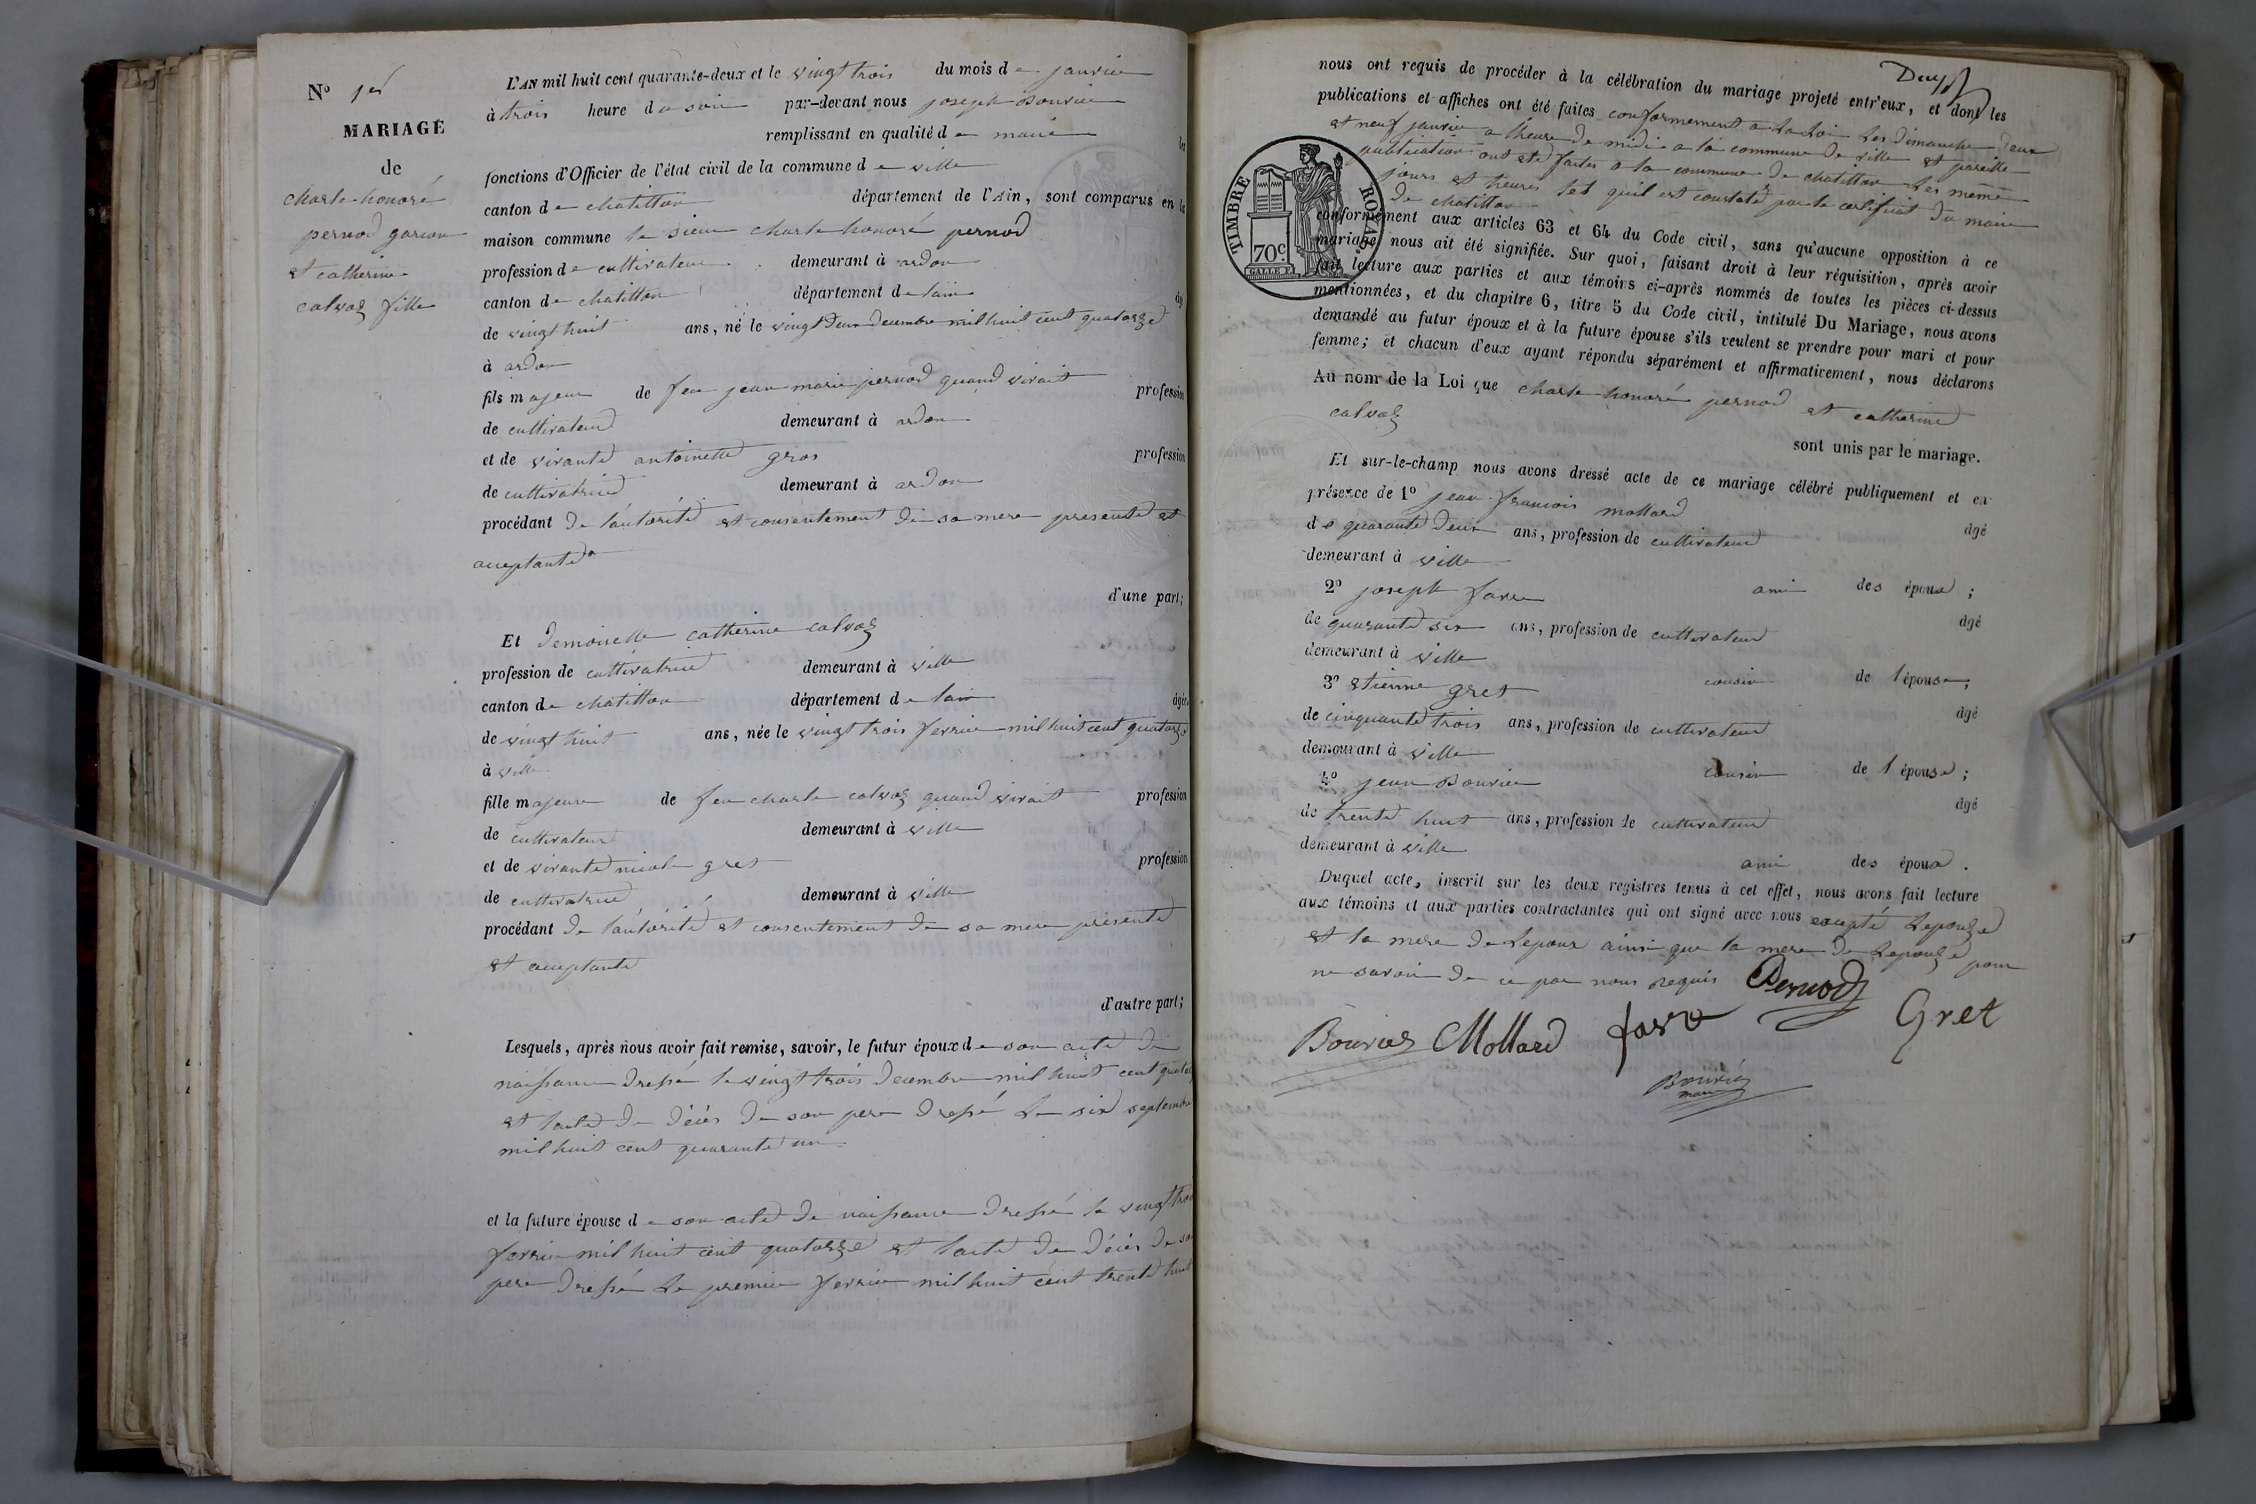 N° 1er
MARIAGE
de
charle honoré
pernod garcon
et catherine
calvaz fille
L'AN mil huit cent quarante-deux et le vingt trois du mois de janvier
à trois heure du soir par-devant nous joseph Bouvier
remplissant en qualité de maire les
fonctions d'Officier de l'état civil de la commune de ville
canton de chatillon département de l'Ain, sont comparus en la
maison commune le sieur charle honoré pernod
profession de cultivateur demeurant à ardon
canton de chatillon département de lain âgé
de vingt huit ans, né le vingt deux decembre mil huit cent quatorze
à ardon
fils majeur de feu jean marie pernod quand vivait profession
de cultivateur demeurant à ardon
et de vivante antoinette gros profession
de cultivatrice demeurant à ardon
procédant de lautorité et consentement de sa mere presente et
acceptante
d'une part;
Et demoiselle catherine calvaz
profession de cultivatrice demeurant à ville
canton de chatillon département de lain âgée
de vingt huit ans, née le vingt trois fevrier mil huit cent quatorze
à ville
fille majeure de feu charle calvaz quand vivait profession
de cultivateur demeurant à ville
et de vivante nicole gret profession
de cultivatrice demeurant à ville
procédant de lautorité et consentement de sa mere présente
et acceptante
d'autre part;
Lesquels, après nous avoir fait remise, savoir, le futur époux de son acte de
naissance dressé le vingt trois decembre mil huit cent quatorze
et lacte de décés de son pere dressé le six septembre
mil huit cent quarante un
et la future épouse de son acte de naissance dressé le vingt trois
fevrier mil huit cent quatorze et lacte de décés de son
pere dressé le premier fevrier mil huit cent trente huit
Deux
nous ont requis de procéder à la célébration du mariage projeté entr'eux, et dont les
publications et affiches ont été faites conformement a la loi les dimanche deux
et neuf janvier a lheure de midi a la commune de ville et pareille
publication ont été faites a la commune de chatillon les même
jours et heures tel quil est constaté par le certificat du maire
de chatillon
TIMBRE ROYAL
70c
conformément aux articles 63 et 64 du Code civil, sans qu'aucune opposition à ce
mariage nous ait été signifiée. Sur quoi, faisant droit à leur réquisition, après avoir
fait lecture aux parties et aux témoins ci-après nommés de toutes les pièces ci-dessus
mentionnées, et du chapitre 6, titre 5 du Code civil, intitulé Du Mariage, nous avons
demandé au futur époux et à la future épouse s'ils veulent se prendre pour mari et pour
femme; et chacun d'eux ayant répondu séparément et affirmativement, nous déclarons
Au nom de la Loi que charle honoré pernod et catherine
calvaz
sont unis par le mariage.
Et sur-le-champ nous avons dressé acte de ce mariage célébré publiquement et en
présence de 1° jean francois mollard âgé
de quarante deux ans, profession de cultivateur
demeurant à ville
ami des époux ;
2° joseph favre âgé
de quarante six ans, profession de cultivateur
demeurant à ville
cousin de l épouse;
3° etienne gret âgé
de cinquante trois ans, profession de cultivateur
demeurant à ville
cousin de l épouse ;
4° jean Bouvier âgé
de trente huit ans, profession de cultivateur
demeurant à ville
ami des époux .
Duquel acte, inscrit sur les deux registres tenus à cet effet, nous avons fait lecture
aux témoins et aux parties contractantes qui ont signé avec nous excepté lepouze
et la mere de lepoux ainsi que la mere de lepouze pour
ne savoir de ce par nous requis Pernod
Bouvier Mollard favre Gret
Bouvier
maire